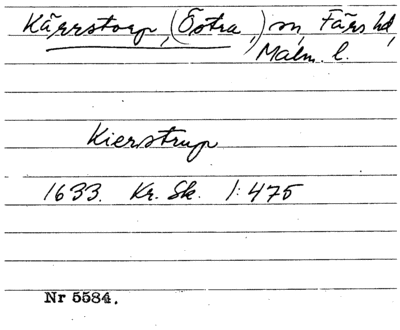 Kärrstorp, (Östra,) sn, Färs hd,
Malm. l.
Kierstrup
1633. Kr. Sk. 1:475
Nr 5584.